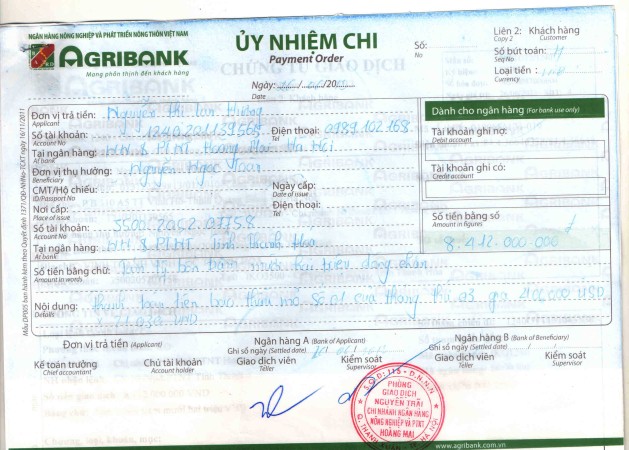 NGÂN HÀNG NÔNG NGHIỆP VÀ PHÁT TRIỂN NÔNG THÔN VIỆT NAM
AGRIBANK
Mang phồn thịnh đến khách hàng
ỦY NHIỆM CHI
Payment Order
Số:
No
Liên 2: Khách hàng
Copy 2 Customer
Số bút toán:
Seq No
Loại tiền :
Currency
Ngày: / /20
Date
Đơn vị trả tiền: Nguyễn Thị Lan Hương
Applicant
Số tài khoản:
Account No
Điện thoại: 0989 102 168
Tel
Tại ngân hàng: NN & PTNT Hoàng Mai Hà Nội
At bank
Đơn vị thụ hưởng: Nguyễn Ngọc Hoan
Beneficiary
CMT/Hộ chiếu:
ID/Passport No
Ngày cấp:
Date of issue
Nơi cấp:
Place of issue
Điện thoại:
Tel
Số tài khoản: 3500 205 2 07758
Account No
Tại ngân hàng: NN & PTNT Tỉnh Thanh Hóa
At bank
Dành cho ngân hàng (For bank use only)
Tài khoản ghi nợ:
Debit account
Tài khoản ghi có:
Credit account
Số tiền bằng số
Amount in figures
8.412.000.000 đ
Số tiền bằng chữ: Tám tỷ bốn trăm mười hai triệu đồng chẵn
Amount in words
Nội dung: Thanh toán tiền thửa mỏ Số 01 của tháng thứ 03 giá 400000 USD
Details
VND
Đơn vị trả tiền (Applicant)
Kế toán trưởng
Chief accountant
Chủ tài khoản
Account holder
Ngân hàng A (Bank of Applicant)
Ghi sổ ngày (Settled date)
Giao dịch viên
Teller
Kiểm soát
Supervisor
Ngân hàng B (Bank of Beneficiary)
Ghi sổ ngày (Settled date) / /
Giao dịch viên
Teller
Kiểm soát
Supervisor
PHÒNG
GIAO DỊCH
NGUYỄN TRÃI
CHI NHÁNH NGÂN HÀNG
NÔNG NGHIỆP VÀ PTNT
HOÀNG MAI
Q. THANH XUÂN - TP. HÀ NỘI
www.agribank.com.vn